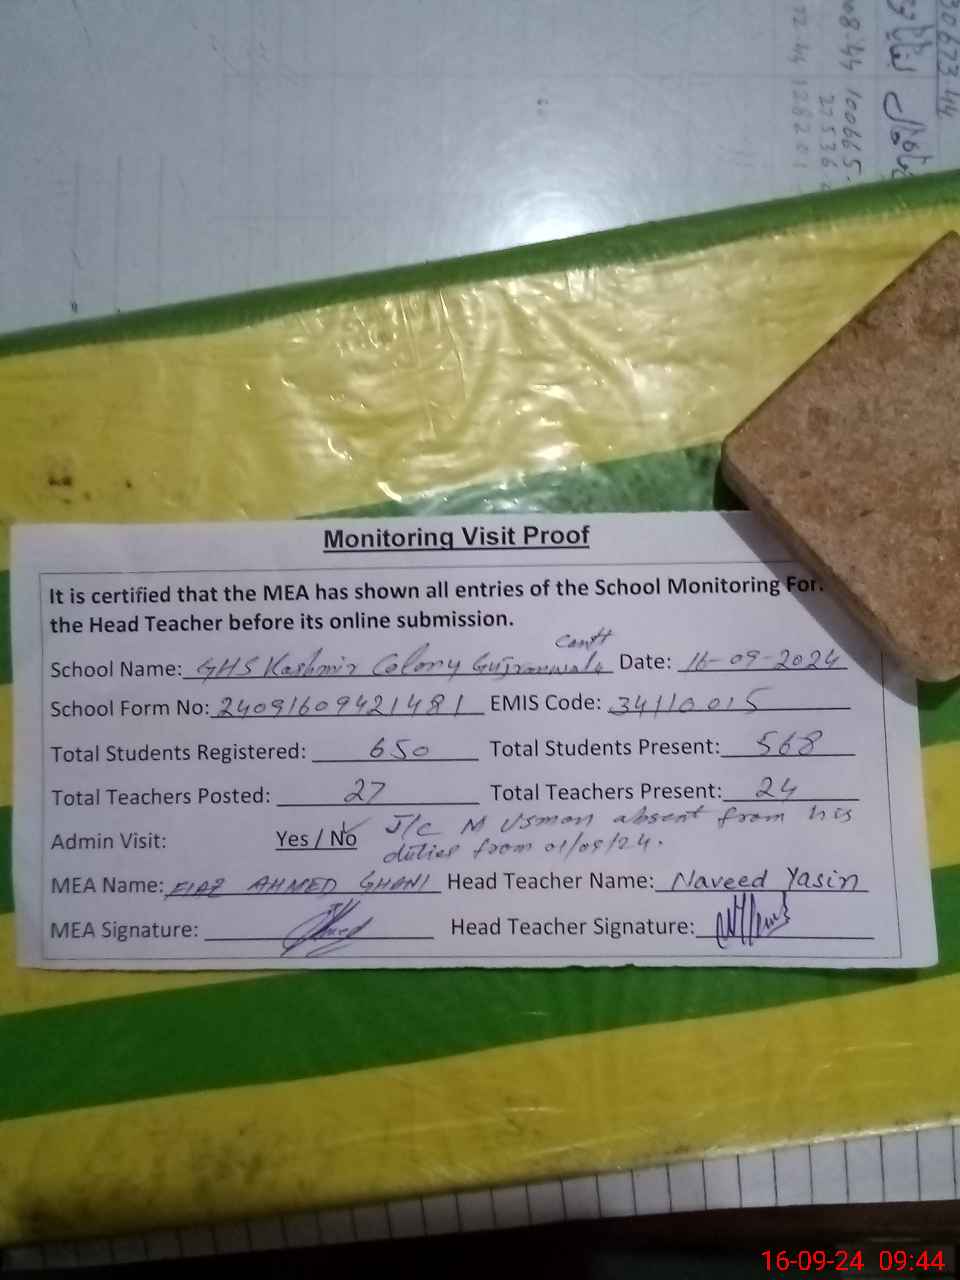 30673.44
08.44 100665.
27536
72.44 128201
Monitoring Visit Proof
It is certified that the MEA has shown all entries of the School Monitoring For
the Head Teacher before its online submission.
School Name: GHS Kashmir Colony Gujranwala Cantt Date: 16-09-2024
School Form No: 24091609421481 EMIS Code: 34110015
Total Students Registered: 650 Total Students Present: 568
Total Teachers Posted: 27 Total Teachers Present: 24
Admin Visit: Yes / No J/C M Usman absent from his
duties from 01/09/24.
MEA Name: FIAZ AHMED GHANI Head Teacher Name: Naveed Yasin
MEA Signature: Head Teacher Signature:
16-09-24 09:44